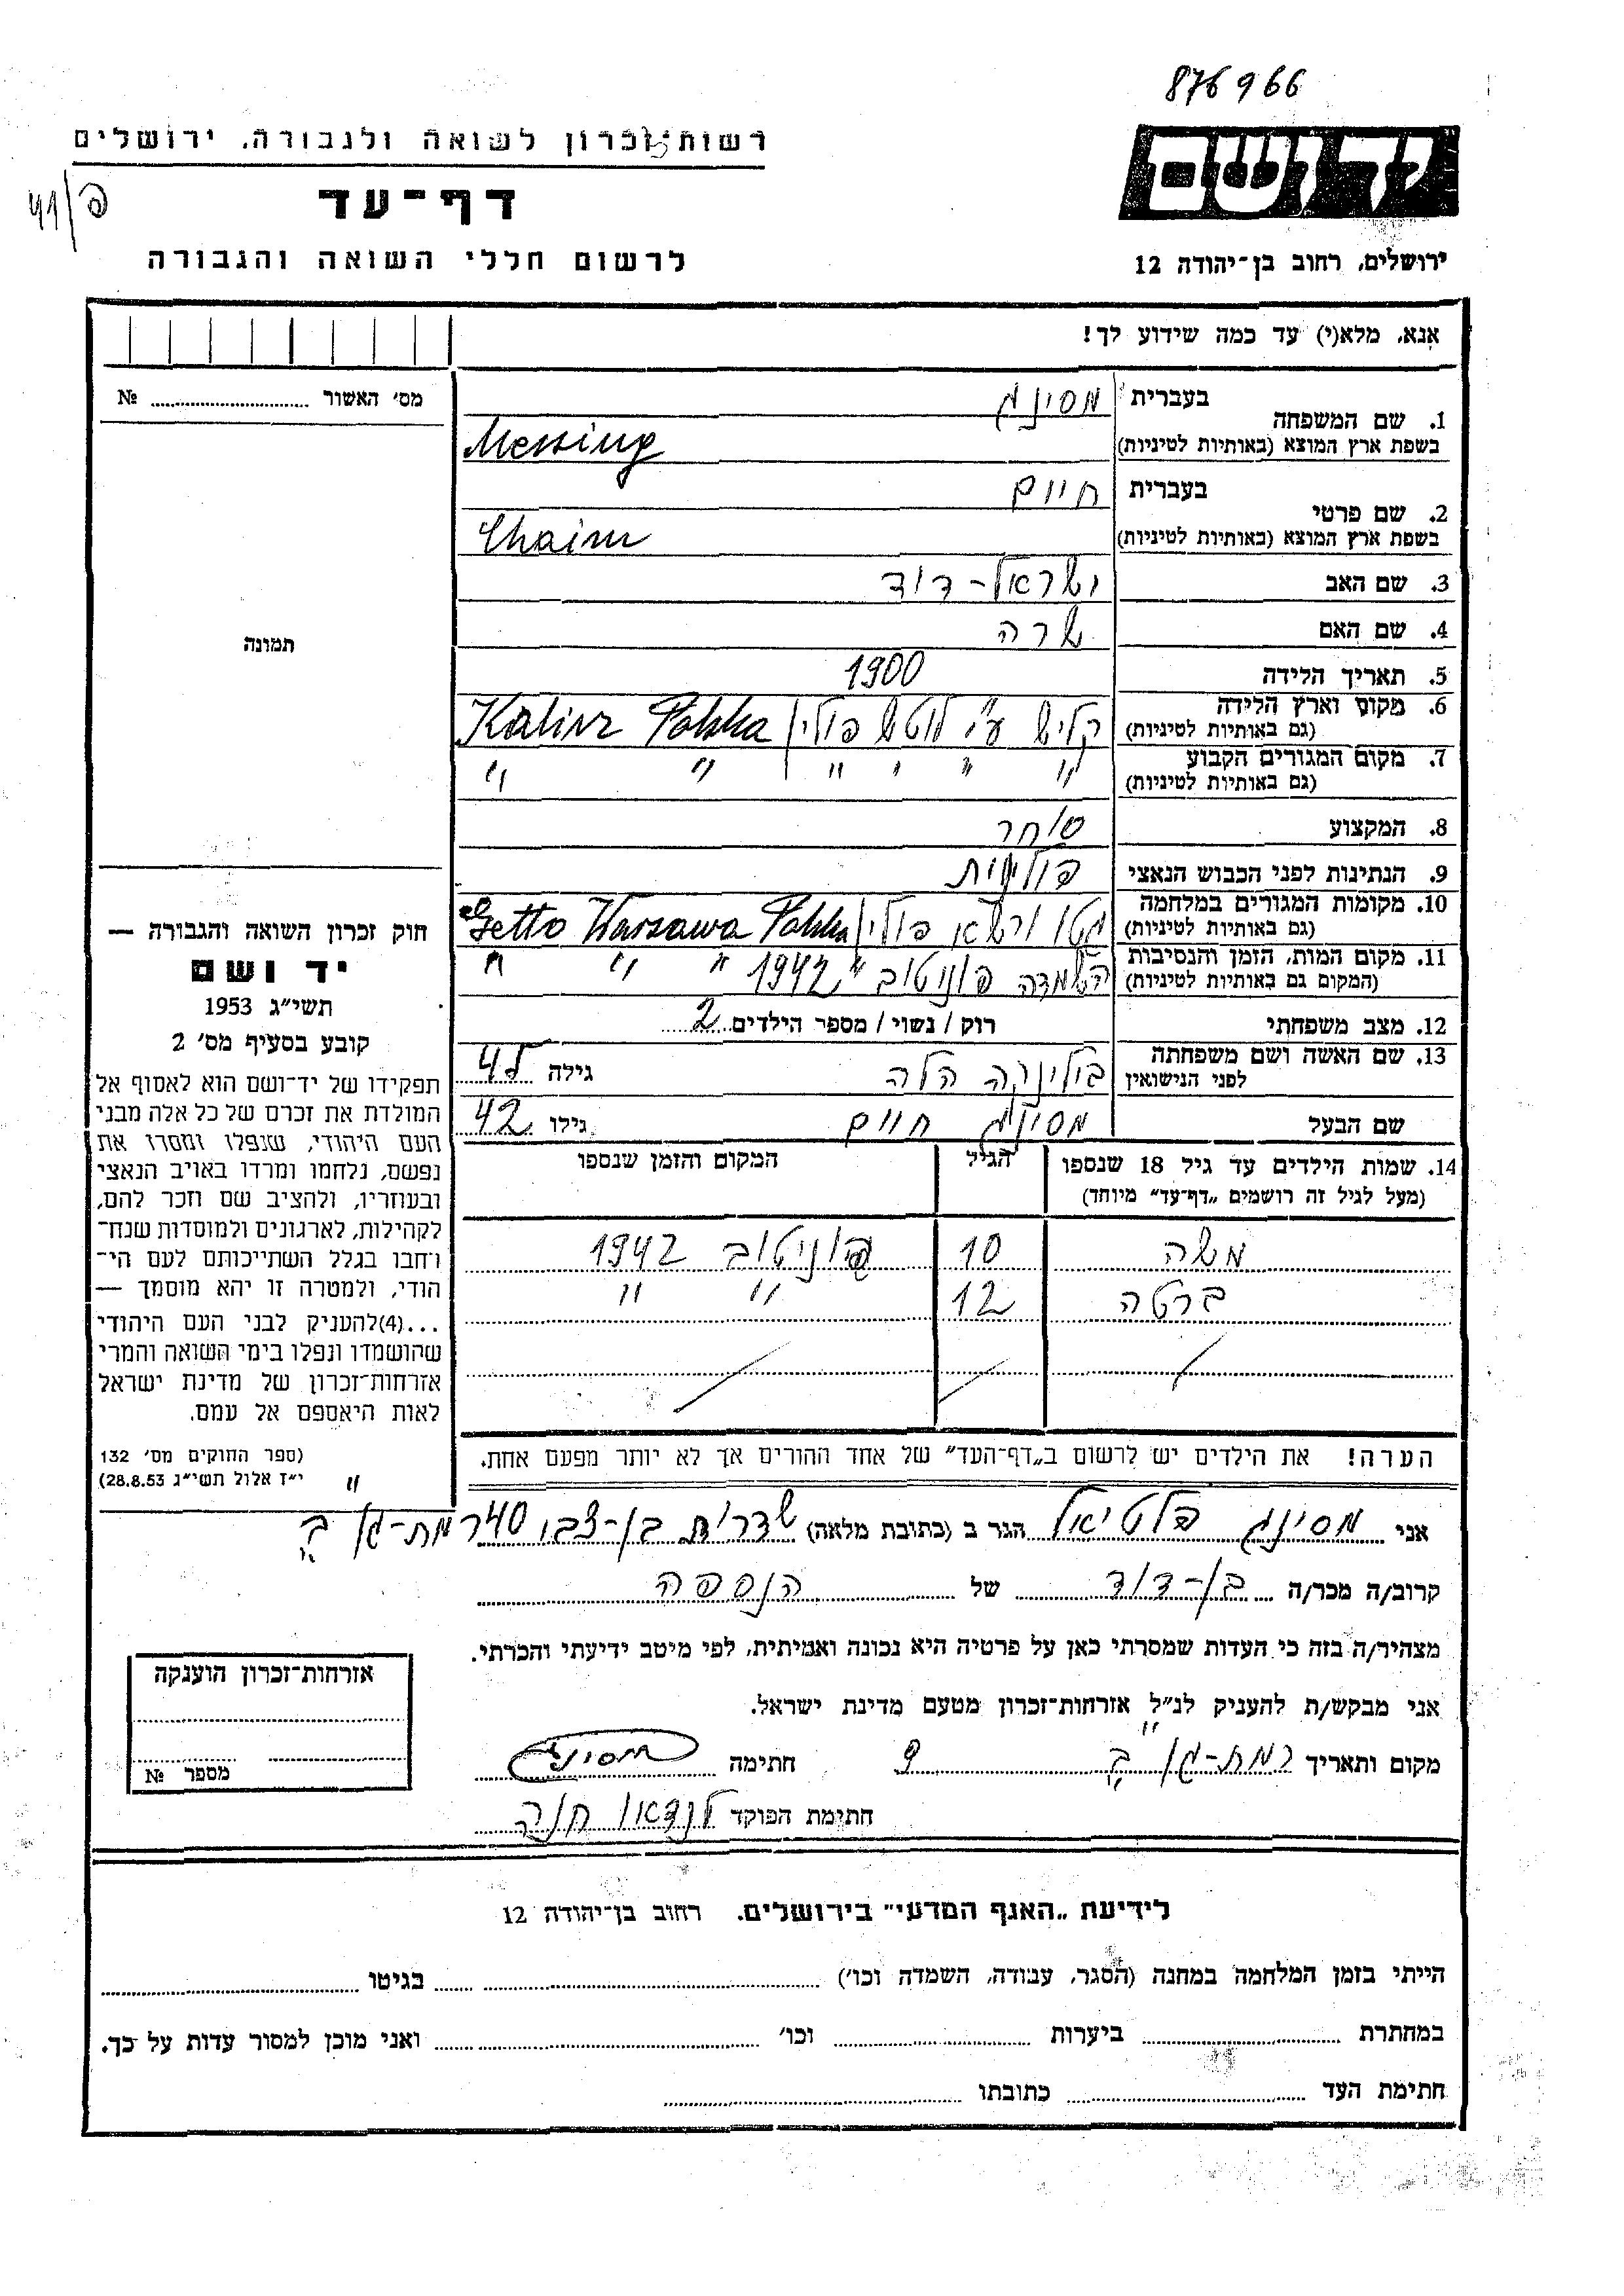 876966
ידושם
ירושלים, רחוב בן־יהודה 12
רשות־זכרון לשואה ולגבורה, ירושלים
דף־עד
לרשום חללי השואה והגבורה
פ/41
אנא, מלא(י) עד כמה שידוע לך!
מס׳ האשור № 
1. שם המשפחה בעברית מסינג
בשפת ארץ המוצא (באותיות לטיניות) Messing
2. שם פרטי בעברית חיים
בשפת ארץ המוצא (באותיות לטיניות) Chaim
3. שם האב ישראל-דוד
4. שם האם שרה
5. תאריך הלידה 1900
6. מקום וארץ הלידה קליש ע״י לודש פולין / Kalisz Polska
(גם באותיות לטיניות)
7. מקום המגורים הקבוע " " " " " "
(גם באותיות לטיניות)
8. המקצוע סוחר
9. הנתינות לפני הכבוש הנאצי פולנית
10. מקומות המגורים במלחמה גטו ורשא פולין / Getto Warszawa Polska
(גם באותיות לטיניות)
11. מקום המות, הזמן והנסיבות השמדה פוניטוב 1942 " " " "
(המקום גם באותיות לטיניות)
12. מצב משפחתי רוק / נשוי / מספר הילדים 2
13. שם האשה ושם משפחתה הלה גילה
לפני הנישואין
שם הבעל מסינג חיים גילו 42
14. שמות הילדים עד גיל 18 שנספו הגיל המקום והזמן שנספו
(מעל לגיל זה רושמים „דף־עד” מיוחד)
משה 10 פוניטוב 1942
ברטה 12 " "
תמונה
חוק זכרון השואה והגבורה —
יד ושם
תשי״ג 1953
קובע בסעיף מס׳ 2
תפקידו של יד־ושם הוא לאסוף אל
המולדת את זכרם של כל אלה מבני
העם היהודי, שנפלו ומסרו את
נפשם, נלחמו ומרדו באויב הנאצי
ובעוזריו, ולהציב שם וזכר להם,
לקהילות, לארגונים ולמוסדות שנח־
רחבו בגלל השתייכותם לעם הי־
הודי, ולמטרה זו יהא מוסמך —
...(4)להעניק לבני העם היהודי
שהושמדו ונפלו בימי השואה והמרי
אזרחות־זכרון של מדינת ישראל
לאות היאספם אל עמם.
(ספר החוקים מס׳ 132
י״ז אלול תשי״ג 28.8.53)
הערה! את הילדים יש לרשום ב„דף־העד” של אחד ההורים אך לא יותר מפעם אחת.
אני מסינג פלטיאל הגר ב (כתובת מלאה) שדרות בן-צבי 40 רמת-גן
קרוב/ה מכר/ה בן-דוד של הנספה
מצהיר/ה בזה כי העדות שמסרתי כאן על פרטיה היא נכונה ואמיתית, לפי מיטב ידיעתי והכרתי.
אני מבקש/ת להעניק לנ״ל אזרחות־זכרון מטעם מדינת ישראל.
מקום ותאריך רמת-גן חתימה מסינג
חתימת הפוקד לנדאו חנה
אזרחות־זכרון הוענקה
מספר №
לידיעת „האגף המדעי” בירושלים. רחוב בן־יהודה 12
הייתי בזמן המלחמה במחנה (הסגר, עבודה, השמדה וכו׳) בגיטו
במחתרת ביערות וכו׳ ואני מוכן למסור עדות על כך.
חתימת העד כתובתו